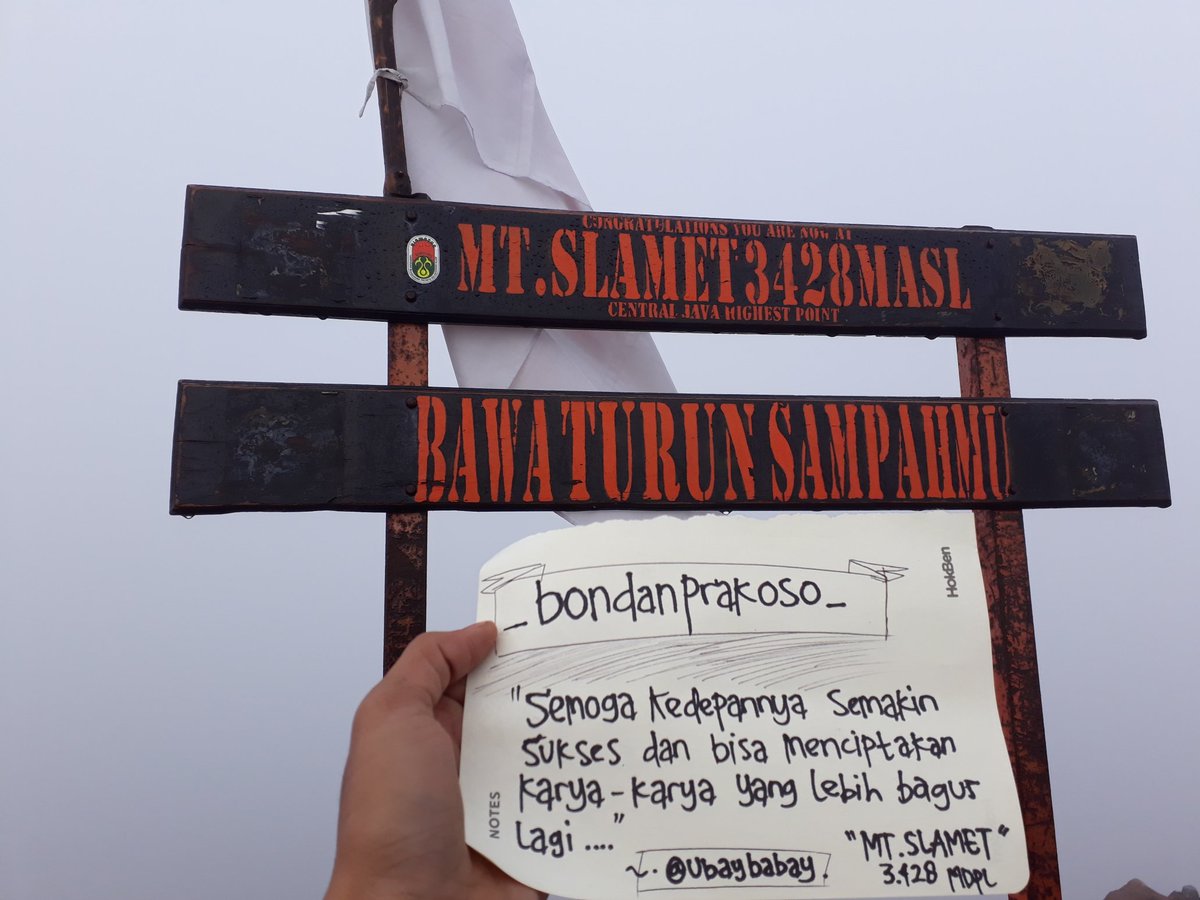 CONGRATULATIONS YOU ARE NOW AT
MT.SLAMET 3428MASL
CENTRAL JAVA HIGHEST POINT
BAWA TURUN SAMPAHMU
HokBen
_bondanprakoso_
"Semoga kedepannya semakin
sukses dan bisa menciptakan
karya-karya yang lebih bagus
lagi ...."
NOTES
@Ubaybabay
"MT.SLAMET"
3.428 MDPL